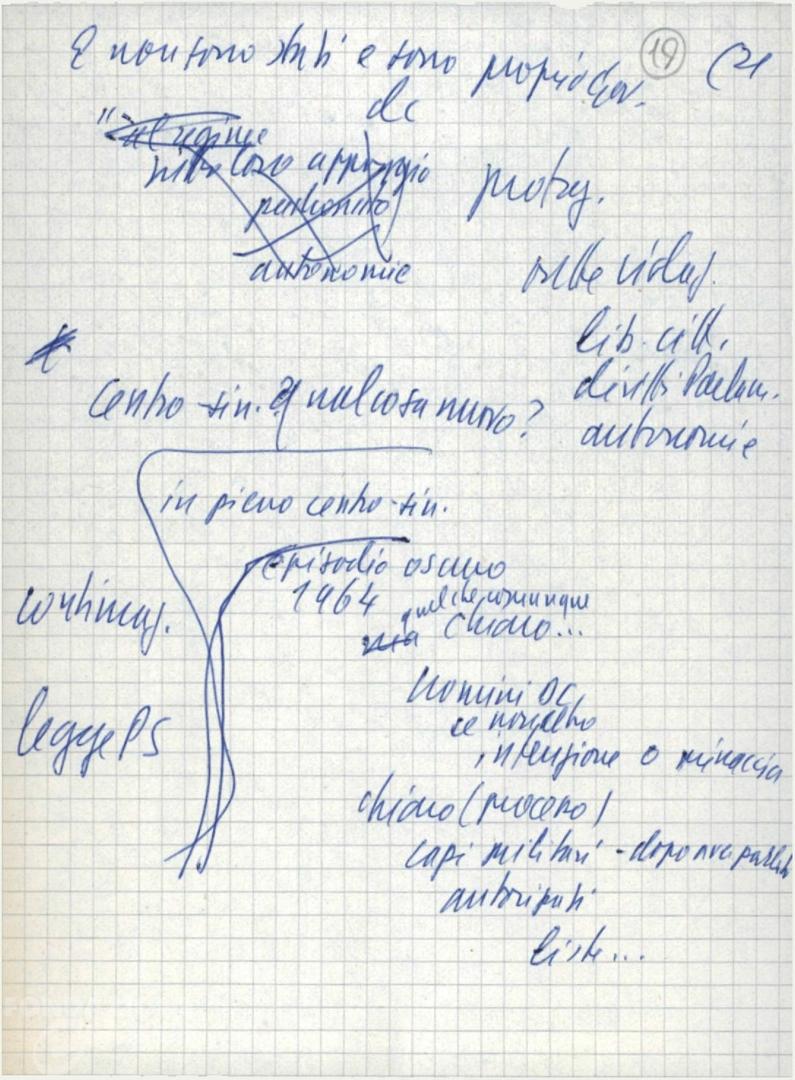 E non sono stati e sono proprio Gov.
19
(21
dc
"al regime
loro appoggio
autonomie
protag.
nelle violaz.
lib. citt.
diritti Parlam.
autonomie
centro-sin. qualcosa nuovo?
in pieno centro-sin.
episodio oscuro
1964
quel che comunque
ma chiaro...
continuaz.
legge PS
Uomini DC
se non altro
intenzione o minaccia
chiaro (processo)
capi militari - dopo aver parlato
autorizzati
liste...